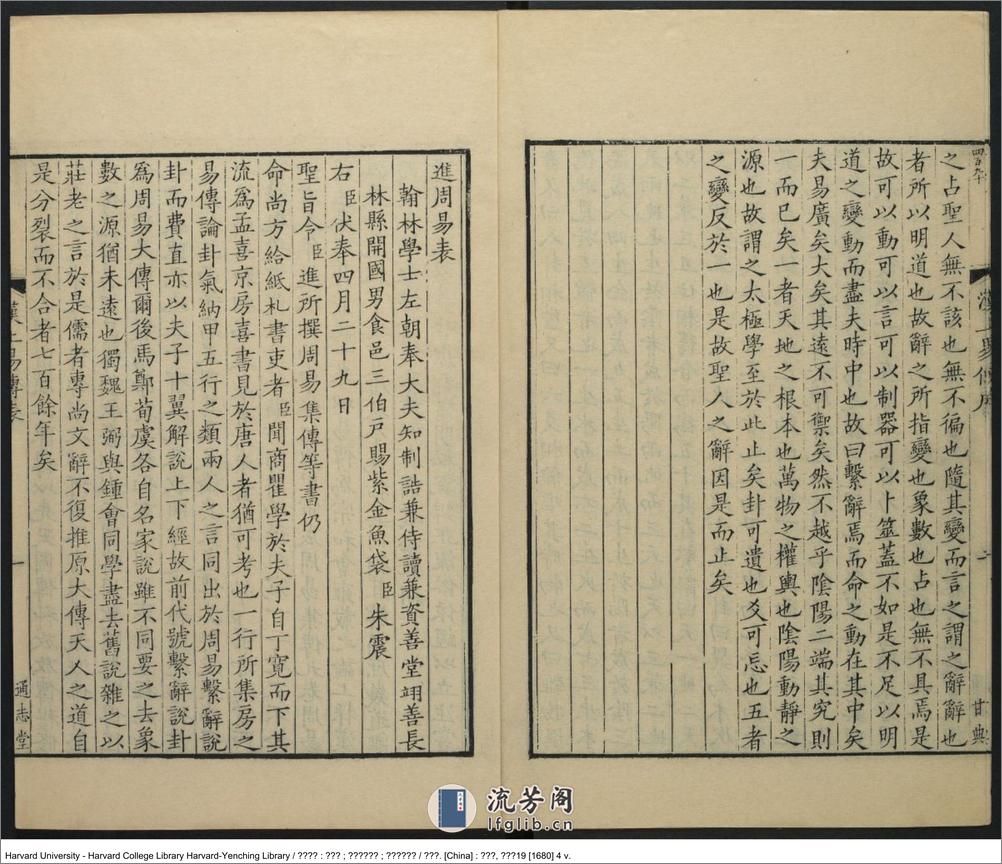 之占聖人無不該也無不徧也隨其變而言之謂之辭辭也
者所以明道也故辭之所指變也象數也占也無不具焉是
故可以動可以言可以制器可以卜筮蓋不如是不足以明
道之變動而盡夫時中也故曰繫辭焉而命之動在其中矣
夫易廣矣大矣其遠不可禦矣然不越乎陰陽二端其究則
一而已矣一者天地之根本也萬物之權輿也陰陽動靜之
源也故謂之太極學至於此止矣卦可遺也爻可忘也五者
之變反於一也是故聖人之辭因是而止矣
甘典
進周易表
翰林學士左朝奉大夫知制誥兼侍讀兼資善堂翊善長
林縣開國男食邑三伯戶賜紫金魚袋臣朱震
右臣伏奉四月二十九日
聖旨令臣進所撰周易集傳等書仍
命尚方給紙札書吏者臣聞商瞿學於夫子自丁寬而下其
流爲孟喜京房喜書見於唐人者猶可考也一行所集房之
易傳論卦氣納甲五行之類兩人之言同出於周易繫辭說
卦而費直亦以夫子十翼解說上下經故前代號繫辭說卦
爲周易大傳爾後馬鄭荀虞各自名家說雖不同要之去象
數之源猶未遠也獨魏王弼與鍾會同學盡去舊說雜之以
莊老之言於是儒者專尚文辭不復推原大傳天人之道自
是分裂而不合者七百餘年矣
漢上易傳表
一
通志堂
流芳阁
lfglib.cn
Harvard University - Harvard College Library Harvard-Yenching Library / ???? : ??? ; ?????? ; ?????? / ???. [China] : ???, ???19 [1680] 4 v.